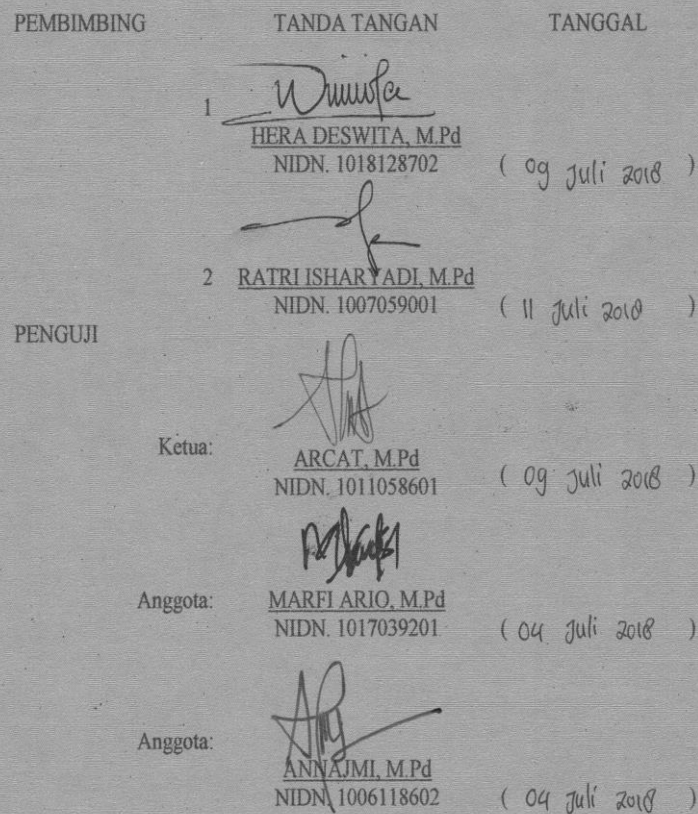 PEMBIMBING TANDA TANGAN TANGGAL
1
HERA DESWITA, M.Pd
NIDN. 1018128702 ( 09 Juli 2018 )
2 RATRI ISHARYADI, M.Pd
NIDN. 1007059001 ( 11 Juli 2018 )
PENGUJI
Ketua:
ARCAT, M.Pd
NIDN. 1011058601 ( 09 Juli 2018 )
Anggota: MARFI ARIO, M.Pd
NIDN. 1017039201 ( 04 Juli 2018 )
Anggota:
ANNAJMI, M.Pd
NIDN. 1006118602 ( 04 Juli 2018 )